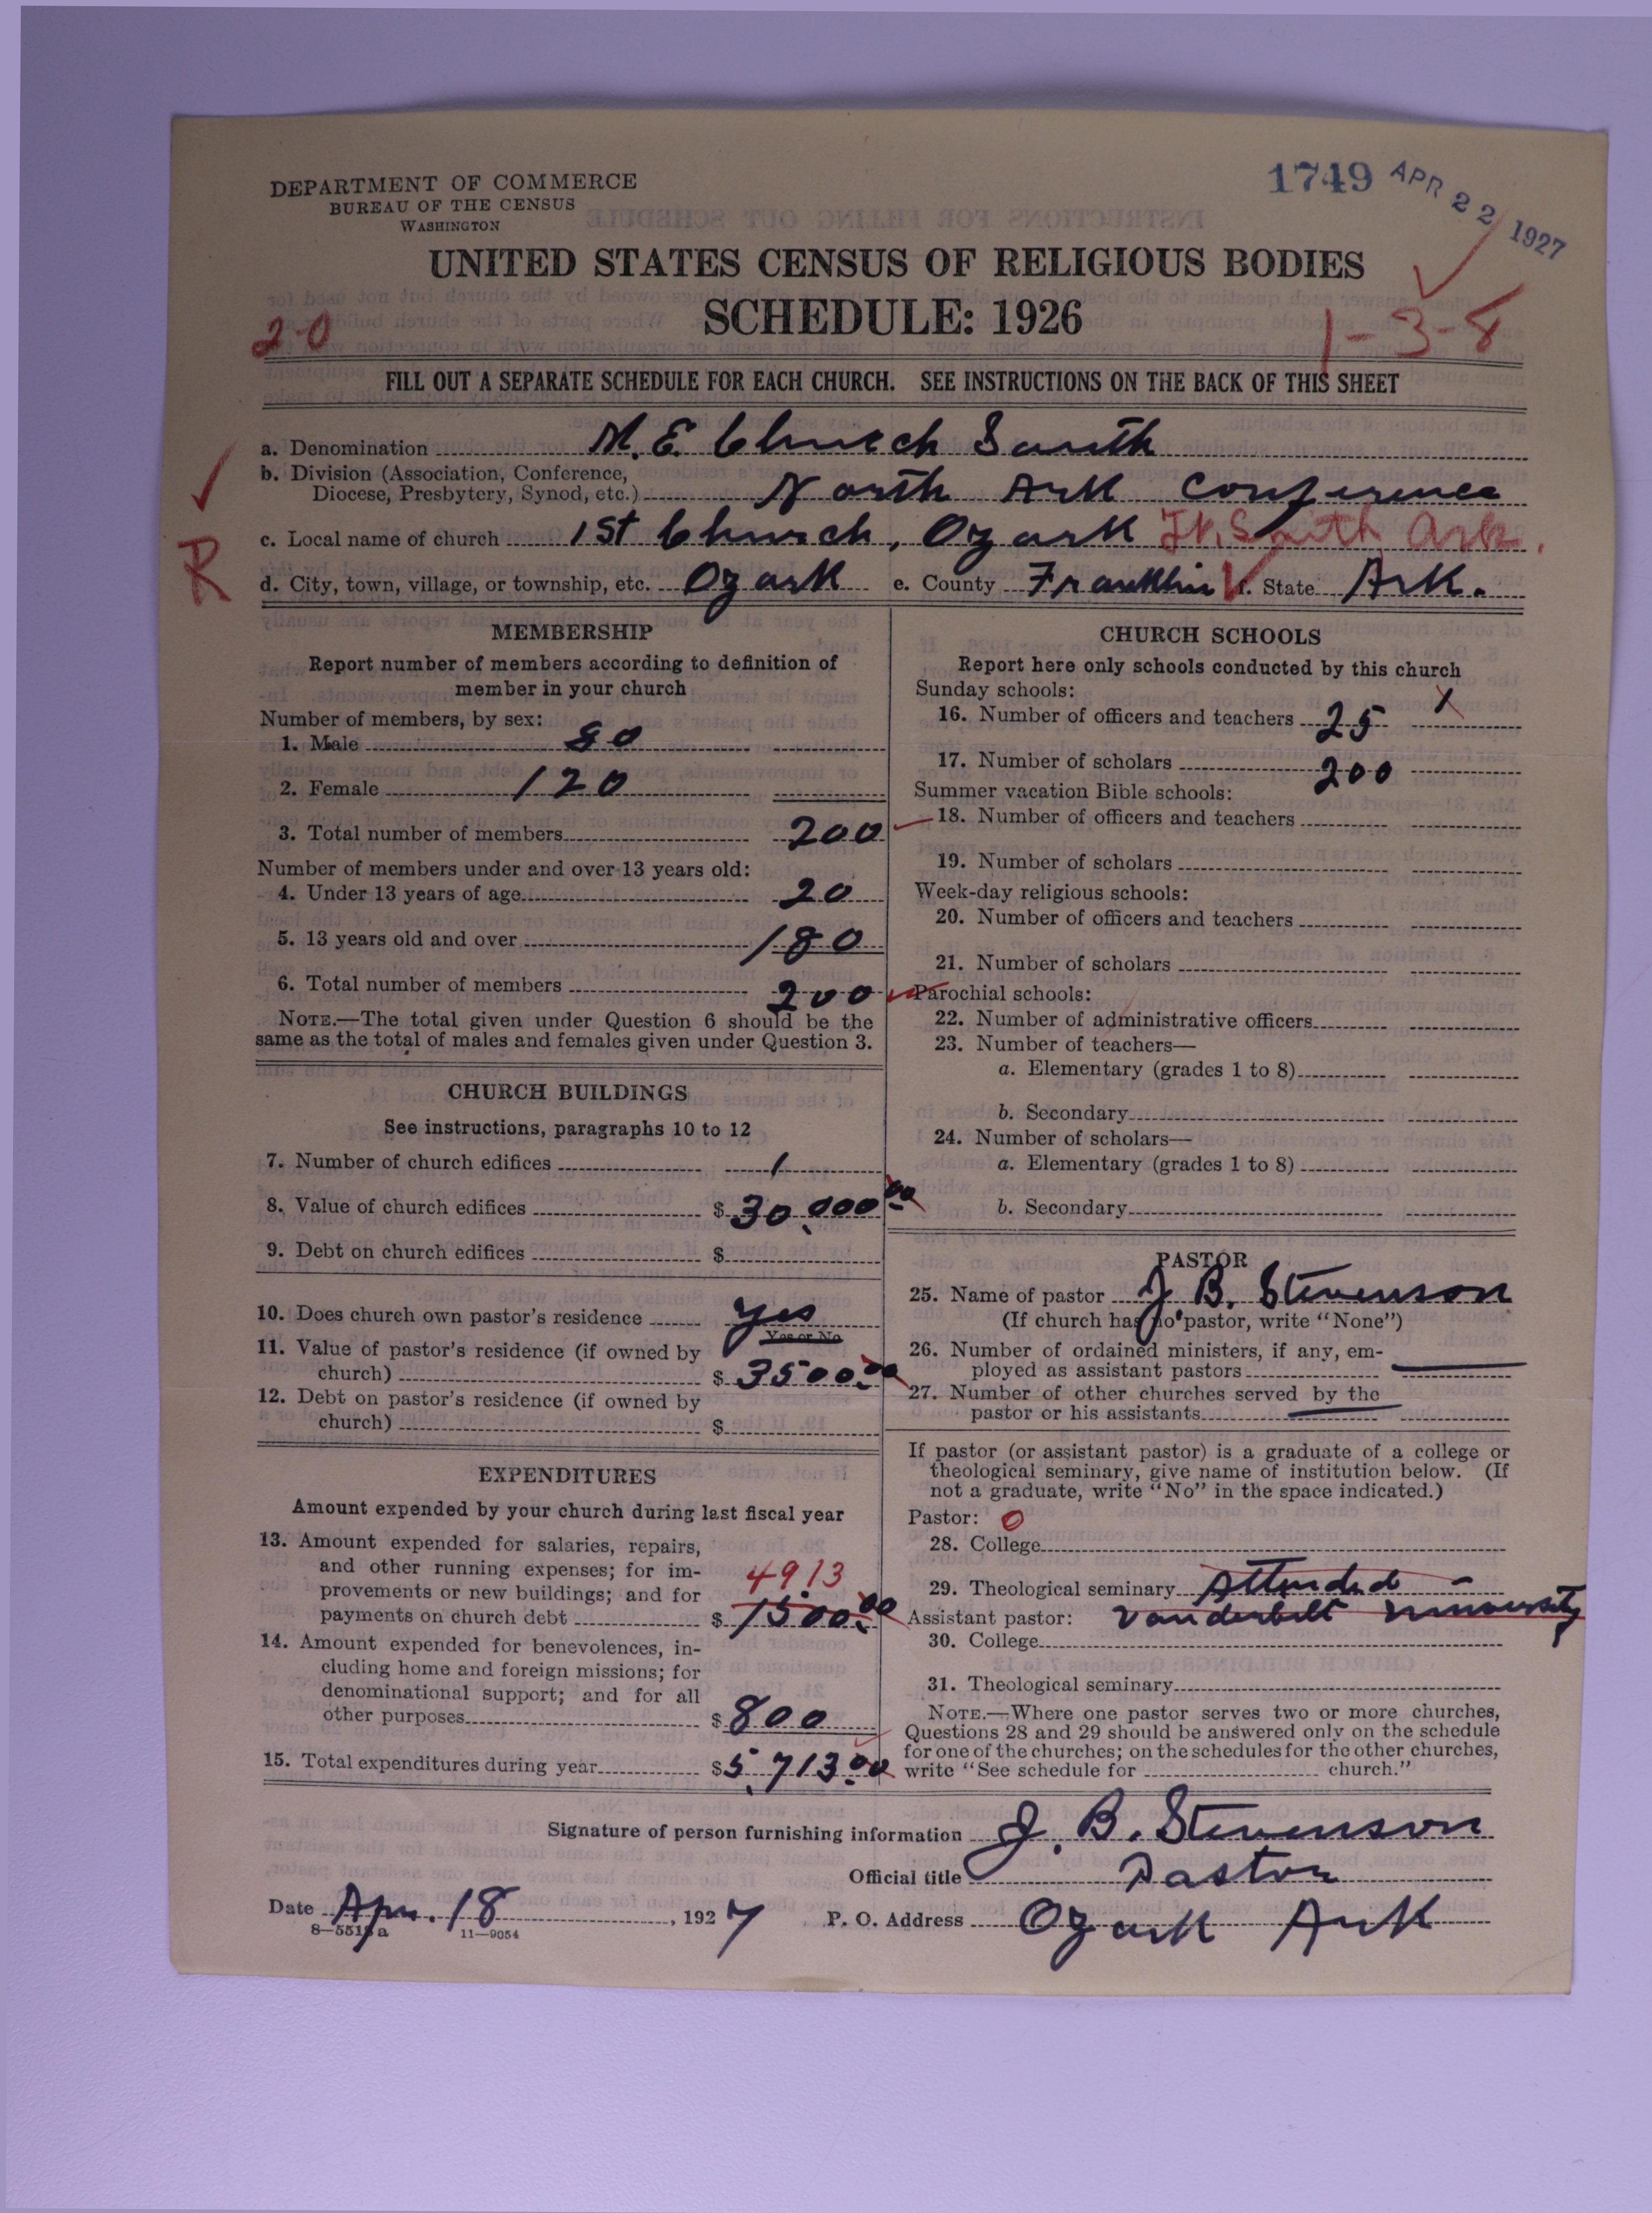 DEPARTMENT OF COMMERCE
BUREAU OF THE CENSUS
WASHINGTON
1749 APR 22 1927
UNITED STATES CENSUS OF RELIGIOUS BODIES
SCHEDULE: 1926
2-0
1-3-8
FILL OUT A SEPARATE SCHEDULE FOR EACH CHURCH. SEE INSTRUCTIONS ON THE BACK OF THIS SHEET
a. Denomination M.E. Church South
b. Division (Association, Conference,
Diocese, Presbytery, Synod, etc.) North Ark Conference
c. Local name of church 1st Church, Ozark Ft. Smith Ark.
R
d. City, town, village, or township, etc. Ozark e. County Franklin f. State Ark.
MEMBERSHIP
Report number of members according to definition of
member in your church
Number of members, by sex:
1. Male 80
2. Female 120
3. Total number of members 200
Number of members under and over 13 years old:
4. Under 13 years of age 20
5. 13 years old and over 180
6. Total number of members 200
NOTE.—The total given under Question 6 should be the
same as the total of males and females given under Question 3.
CHURCH BUILDINGS
See instructions, paragraphs 10 to 12
7. Number of church edifices 1
8. Value of church edifices $ 30,000.00
9. Debt on church edifices $
10. Does church own pastor's residence yes
Yes or No
11. Value of pastor's residence (if owned by
church) $ 3500.00
12. Debt on pastor's residence (if owned by
church) $
EXPENDITURES
Amount expended by your church during last fiscal year
13. Amount expended for salaries, repairs,
and other running expenses; for im-
provements or new buildings; and for
4913
payments on church debt $ 1500.00
14. Amount expended for benevolences, in-
cluding home and foreign missions; for
denominational support; and for all
other purposes $ 800
15. Total expenditures during year $ 5,713.00
CHURCH SCHOOLS
Report here only schools conducted by this church
Sunday schools:
16. Number of officers and teachers 25 X
17. Number of scholars 200
Summer vacation Bible schools:
18. Number of officers and teachers
19. Number of scholars
Week-day religious schools:
20. Number of officers and teachers
21. Number of scholars
Parochial schools:
22. Number of administrative officers
23. Number of teachers—
a. Elementary (grades 1 to 8)
b. Secondary
24. Number of scholars—
a. Elementary (grades 1 to 8)
b. Secondary
PASTOR
25. Name of pastor J. B. Stevenson
(If church has no pastor, write "None")
26. Number of ordained ministers, if any, em-
ployed as assistant pastors
27. Number of other churches served by the
pastor or his assistants
If pastor (or assistant pastor) is a graduate of a college or
theological seminary, give name of institution below. (If
not a graduate, write "No" in the space indicated.)
Pastor: 0
28. College
29. Theological seminary Attended -
Assistant pastor: Vanderbilt University
30. College
31. Theological seminary
NOTE.—Where one pastor serves two or more churches,
Questions 28 and 29 should be answered only on the schedule
for one of the churches; on the schedules for the other churches,
write "See schedule for church."
Signature of person furnishing information J. B. Stevenson
Official title Pastor
Date Apr. 18, 1927 P. O. Address Ozark Ark
8—5515a 11—9054